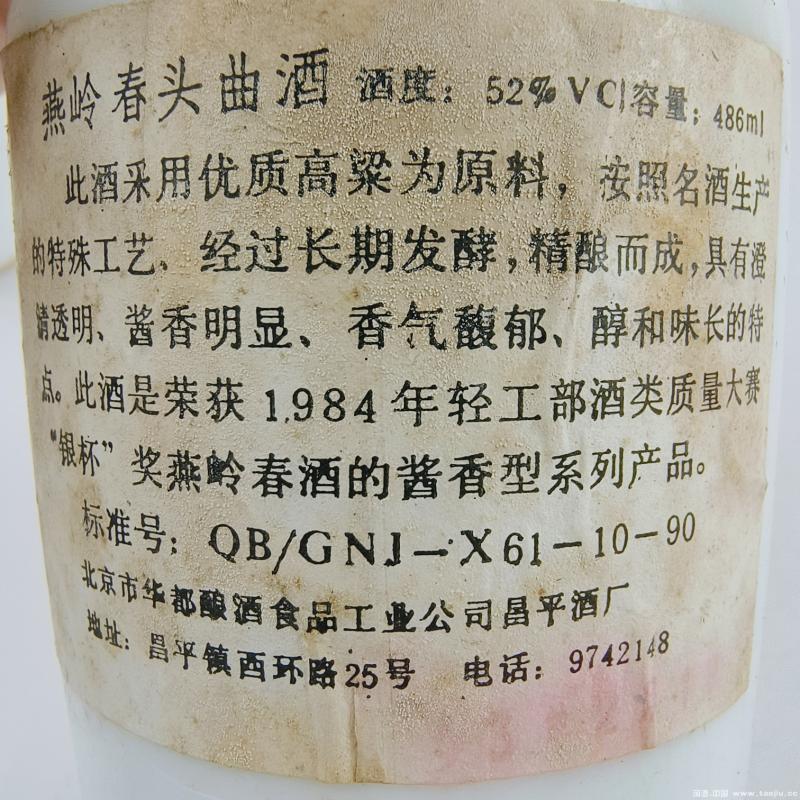 燕岭春头曲酒 酒度：52%VC|容量；486ml
此酒采用优质高粱为原料，按照名酒生产
的特殊工艺、经过长期发酵，精酿而成，具有澄
清透明、酱香明显、香气馥郁、醇和味长的特
点。此酒是荣获1.984年轻工部酒类质量大赛
“银杯”奖燕岭春酒的酱香型系列产品。
标准号：QB/GNJ-X61-10-90
北京市华都酿酒食品工业公司昌平酒厂
地址：昌平镇西环路25号 电话：9742148
www.tanjiu.cc